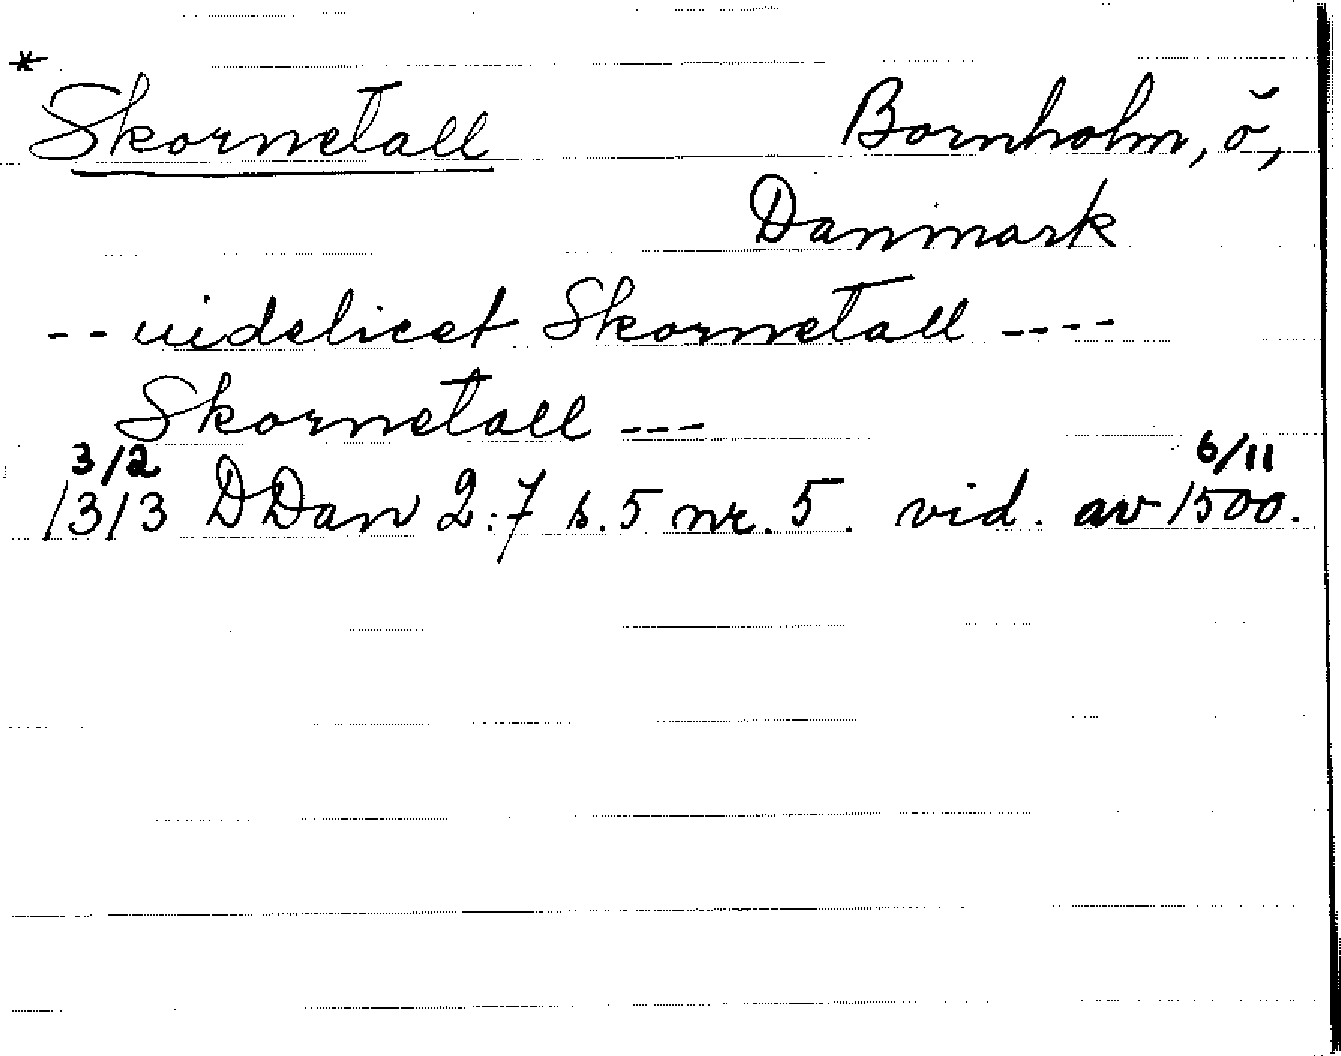 *
Skornetall Bornholm, ö,
Danmark
-- uidelicet Skornetall ----
Skornetall ---
3/2 6/11
1313 DDan 2:7 s. 5 nr. 5. vid. av 1500.